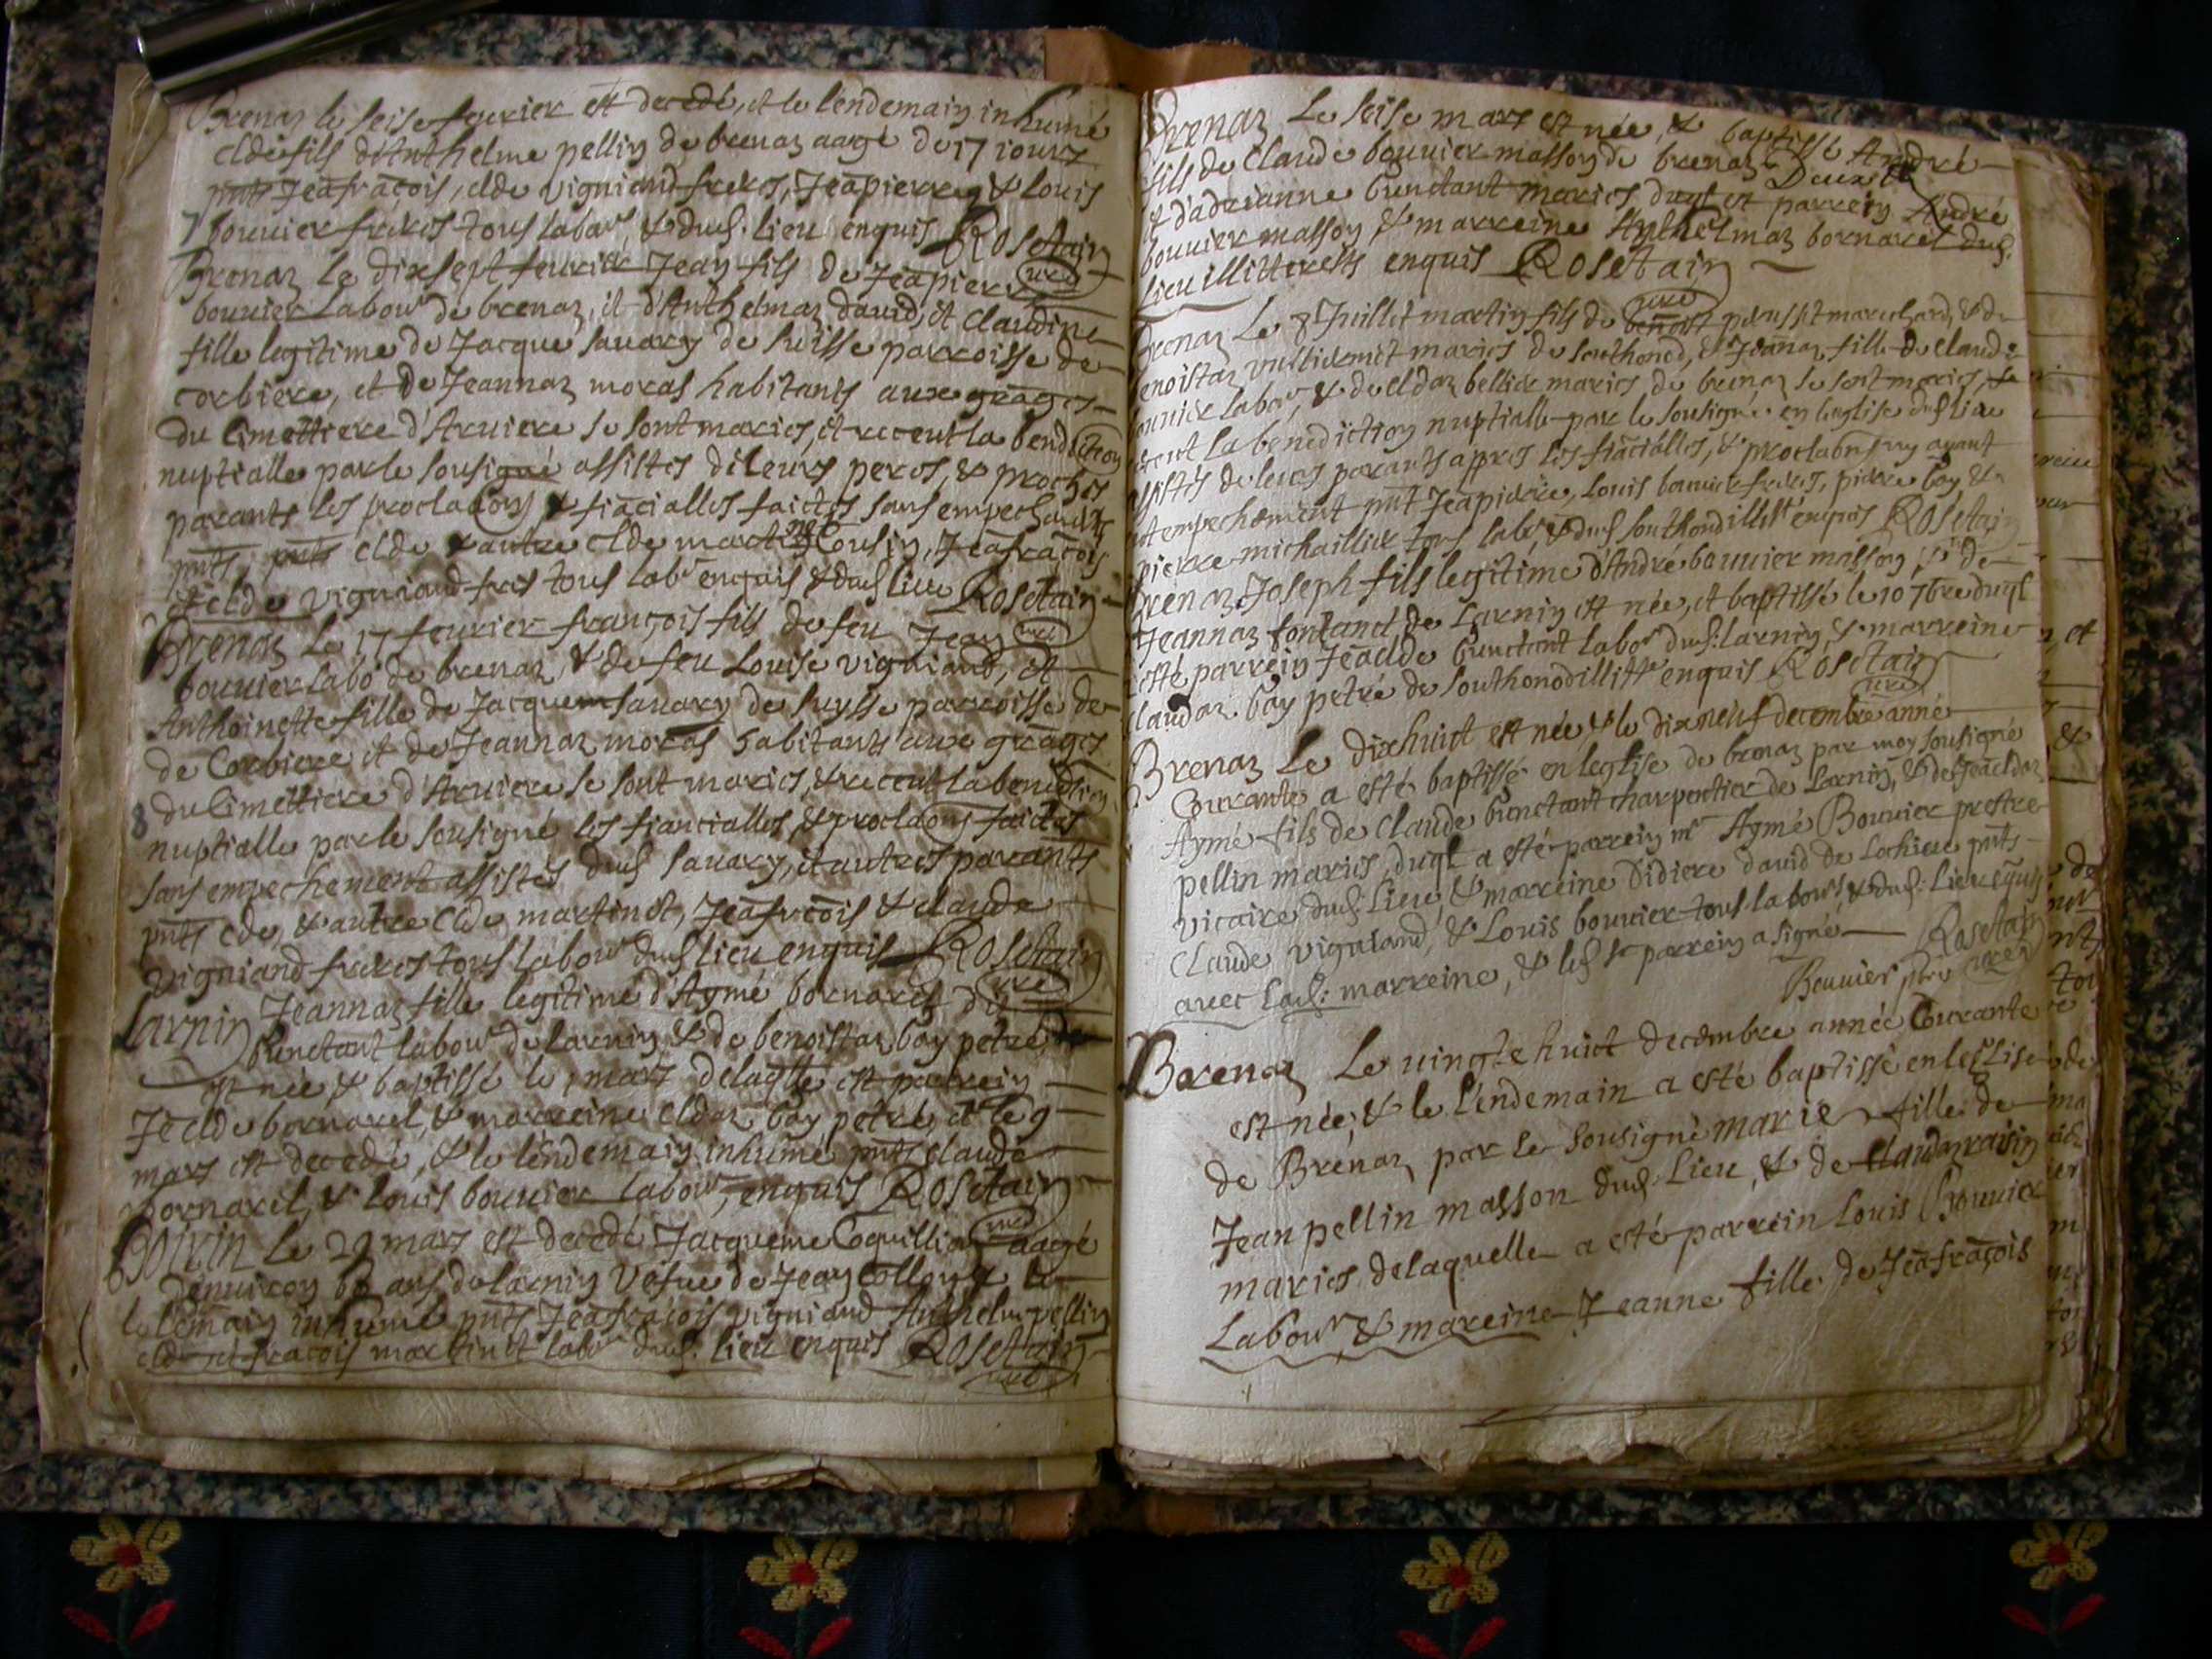 Brenaz le seise feurier est decedé, et le lendemain inhumé
Clde fils d'Anthelme pellin de brenaz aagé de 17 iours
pnts Jeafrãçois, clde vigniand freres, Jeapierre, & Louis
7 bouuier freres tous labor, & dud. lieu enquis Rosetain
curé
Brenaz le dixsept feurier Jean fils de Jeapierre
bouuier Labour de brenaz, et d'Anthelmaz dauid, et Claudine
fille legitime de Jacque sauary de suisse parroisse de
corbiere, et de Jeannaz moras habitants aux grãges
du Cimettiere d'Aruiere se sont mariés, et receut la bendiction
nuptialle par le sousigné assistés de leurs peres, & proches
parants les proclaõns & fiãcialles faictes sans empechamts
pnts, pnts clde & autre clde martinet Cousin, Jeafrãçois
et clde vigniand fres tous labr enquis & dud lieu Rosetain
curé
Brenaz le 17 feurier françois fils de feu Jean
bouuier labor de brenaz, & de feu Louise vigniand, et
Anthoinette fille de Jacquem sauary de suysse parroisse de
de Corbiere et de Jeannaz moras habitants aux grãges
du Cimettiere d'Aruiere se sont mariés, & receut la benediction
8 nuptialle par le sousigné les fiancialles, & proclaons faictes
sans empechement assistés dud sauary, et autres parants
pnts clde, & autre Clde martinet, Jeafrãçois & claude
vigniand freres tous labour dud lieu enquis Rosetain
curé
Larnin Jeannaz fille legitime d'Aymé bornarel dit
bunctant labour de larnin, & de benoistaz bay petré
est née & baptissé le mars delaqlle est parrein
Jeã clde bornarel, & marreine cldaz bay petré, et le 9
mars est decedé, & le lendemain inhumé pnts claude
bornarel, & Louis bouuier labour, enquis Rosetain
curé
Boirin le 29 mars est decedé Jacqueme Coquillion aagé
denuiron 60 ans de larnin vefue de Jean Collon, & le
le lemain inhumé pnts Jeafrãçois vigniand Anthelm pellin
clde et frãcois martinet labor dud. lieu enquis Rosetain
curé
Brenaz Le seise mars est née, & baptissé André
fils de Claude bouuier masson de brenaz
& d'adrianne bunctant mariés duql est parrein André
bouuier masson & marreine Anthelmaz bornarel dud.
Lieu illitterests enquis Rosetain
curé
Brenaz Le 8 Juillet martin fils de benoist
benoistaz vulliermet mariés de southonod, & Jeãnaz fille de claude
bouuier labor, & de cldaz bellier mariés de brenaz se sont mariés,
receut la benediction nuptialle par le sousigné en leglise dud lieu
assistés de leurs parants appres les fiãcialles, & proclaons ny ayant
empechement pnt Jeapierre, Louis bouuier freres, pierre bay, &
pierre michaillier tous labr & dud southonod illitt enquis Rosetain
Brenaz Joseph fils legitime d'André bouuier masson, & de
Jeannaz fontand de Larnin est née, et baptissé le 10 7bre duql
esté parrein Jeãclde bunctant labor dud. larnin, & marreine
claudaz bay petré de southonod illitt enquis Rosetain
curé
Brenaz Le dixhuict est née & le dixneuf decembre année
Courante a esté baptissé en leglise de brenaz par moy sousigné
Aymé fils de Claude bunctant charpentier de Larnin, & de Jeãcldaz
pellin mariés, duql a esté parrein mr Aymé Bouuier prestre
vicaire dud. Lieu, & marreine Didiere dauid de Lochieu pnts
Claude vigniand, & Louis bouuier tous labours & dud. Lieu enquis
auec lad. marreine, & led sr parrein a signé Rosetain
Bouuier pbre curé
Brenaz Le uingtehuict decembre année Courante
est née, & le lendemain a esté baptissé en leglise
de Brenaz par le sousigné marie fille de
Jean pellin masson dud. Lieu, & de Claudaz raisin
mariés delaquelle a esté parrein Louis Bouuier
Labour, & mareine Jeanne fille de Jeafrãçois